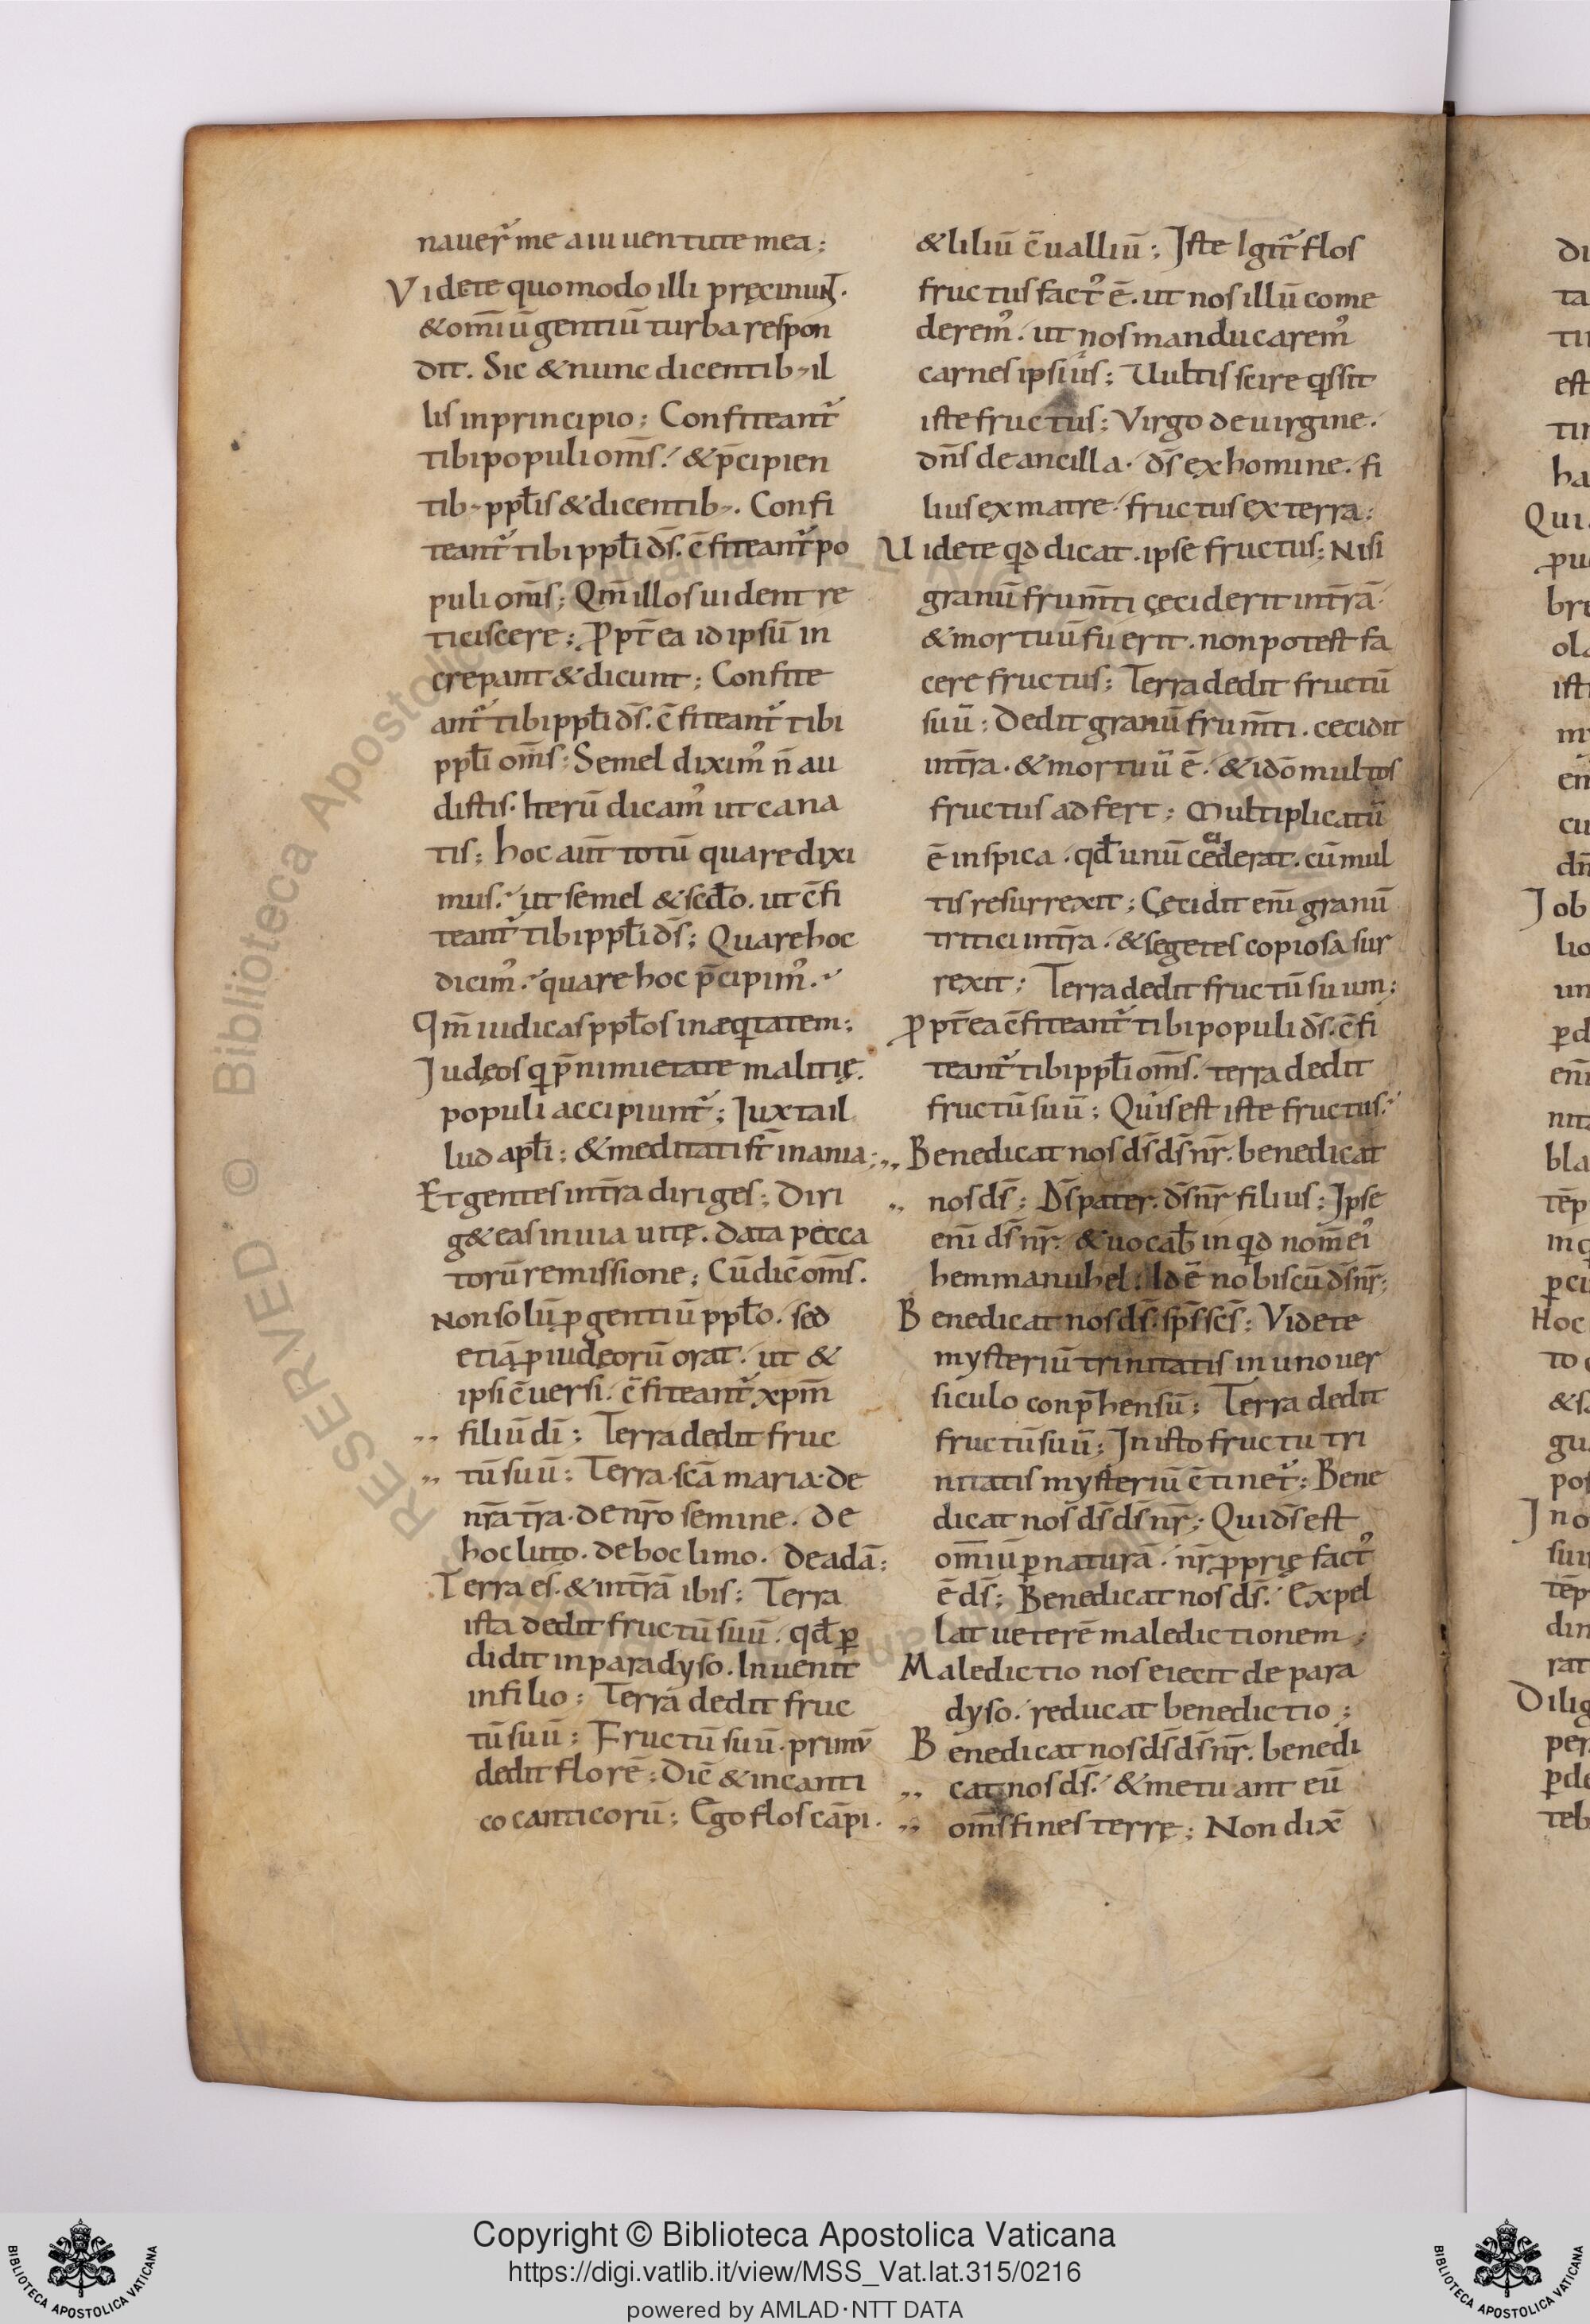 nauer̃ me a iuuentute mea;
Videte quomodo illi pręcinunt.
& om̄iū gentiū turba respon
dit. Sic & nunc dicentib; il
lis in principio; Confiteant᷑
tibi populi om̄s. & p̄cipien
tib; ppłis & dicentib;. Confi
teant᷑ tibi ppłi ds̄. c̄fiteant᷑ po
puli om̄s; Qm̄ illos uident re
ticiscere; ꝓpt̄ea id ipsū in
crepant & dicunt; Confite
ant᷑ tibi ppłi ds̄. c̄fiteant᷑ tibi
ppłi om̄s; Semel diximꝰ n̄ au
distis. Iterū dicamꝰ ut cana
tis; hoc aūt totū quare dixi
mus. ut semel & scđo. ut c̄fi
teant᷑ tibi ppłi ds̄; Quare hoc
dicimꝰ. quare hoc p̄cipimꝰ.
Qm̄ iudicas ppłos in æqtatem;
Judęos q p̄ nimietate malitię.
populi accipiunt᷑; Juxta il
lud apłi; & meditati st̄ inania;
Et gentes in tr̄a diriges; Diri
g& eas in uia uitę. data pecca
torū remissione; Cū dic̄ om̄s.
Non solū ꝓ gentiū ppło. sed
etiā ꝓ iudęorū orat. ut &
ipsi c̄uersi. c̄fiteant᷑ xpm̄
filiū dī; Terra dedit fruc
tū suū; Terra scā maria. de
nr̄a tr̄a. de nr̄o semine. de
hoc luto. de hoc limo. de adā;
Terra es. & in tr̄ā ibis; Terra
ista dedit fructū suū. qđ ꝑ
didit in paradyso. Inuenit
in filio; Terra dedit fruc
tū suū; Fructū suū. primū
dedit florē; Dic̄ & in canti
co canticorū; Ego flos cāpi.
& liliū c̄ualliū; Iste Igit᷑ flos
fructus factꝰ ē. ut nos illū come
deremꝰ. ut nos manducaremꝰ
carnes ipsius; Uultis scire qs sit
iste fructus; Virgo de uirgine.
dn̄s de ancilla. ds̄ ex homine. fi
lius ex matre. fructus ex terra;
Uidete qd dicat. ipse fructus; Nisi
granū frum̄ti ceciderit in tr̄ā.
& mortuū fuerit. non potest fa
cere fructus; Terra dedit fructū
suū; Dedit granū frum̄ti. cecidit
in tr̄a. & mortuū ē. & idō multos
fructus adfert; Multiplicatū
ē in spica. qđ unū ceciderat. cū mul
tis resurrexit; Cecidit eni granū
tritici in tr̄a. & segetes copiosa sur
rexit; Terra dedit fructū suum;
ꝓpt̄ea c̄fiteant᷑ tibi populi ds̄. c̄fi
teant᷑ tibi ppłi om̄s. terra dedit
fructū suū; Quis est iste fructus.
Benedicat nos ds̄ ds̄ nr̄. benedicat
nos ds̄; Ds̄ pater. ds̄ nr̄ filius; Ipse
eni ds̄ nr̄. & uocab̄ in qd nom̄ eiꝰ
hemmanuhel. Id ē nobiscū ds̄ nr̄;
Benedicat nos ds̄. sps̄ scs̄; Videte
mysteriū trinitatis in uno uer
siculo conp̄hensū; Terra dedit
fructū suū; In isto fructu tri
nitatis mysteriū c̄tinet᷑; Bene
dicat nos ds̄ ds̄ nr̄; Qui ds̄ est
om̄iū ꝑ naturā. nr̄ ꝓprię factꝰ
ē ds̄; Benedicat nos ds̄. Expel
lat ueterē maledictionem;
Maledictio nos eiecit de para
dyso. reducat benedictio;
Benedicat nos ds̄ ds̄ nr̄. benedi
cat nos ds̄. & metuant eū
om̄s fines terrę; Non dix̄
di
ta
est
ha
Qui
bre
ola
Job
lio
un
bla
Hoc
to
&s
gu
Jno
din
rat
Dilig
per
teb
RESERVED © Biblioteca Apostolica Vaticana ALL RIGHTS
Copyright © Biblioteca Apostolica Vaticana
https://digi.vatlib.it/view/MSS_Vat.lat.315/0216
powered by AMLAD·NTT DATA
BIBLIOTECA APOSTOLICA VATICANA
BIBLIOTECA APOSTOLICA VATICANA